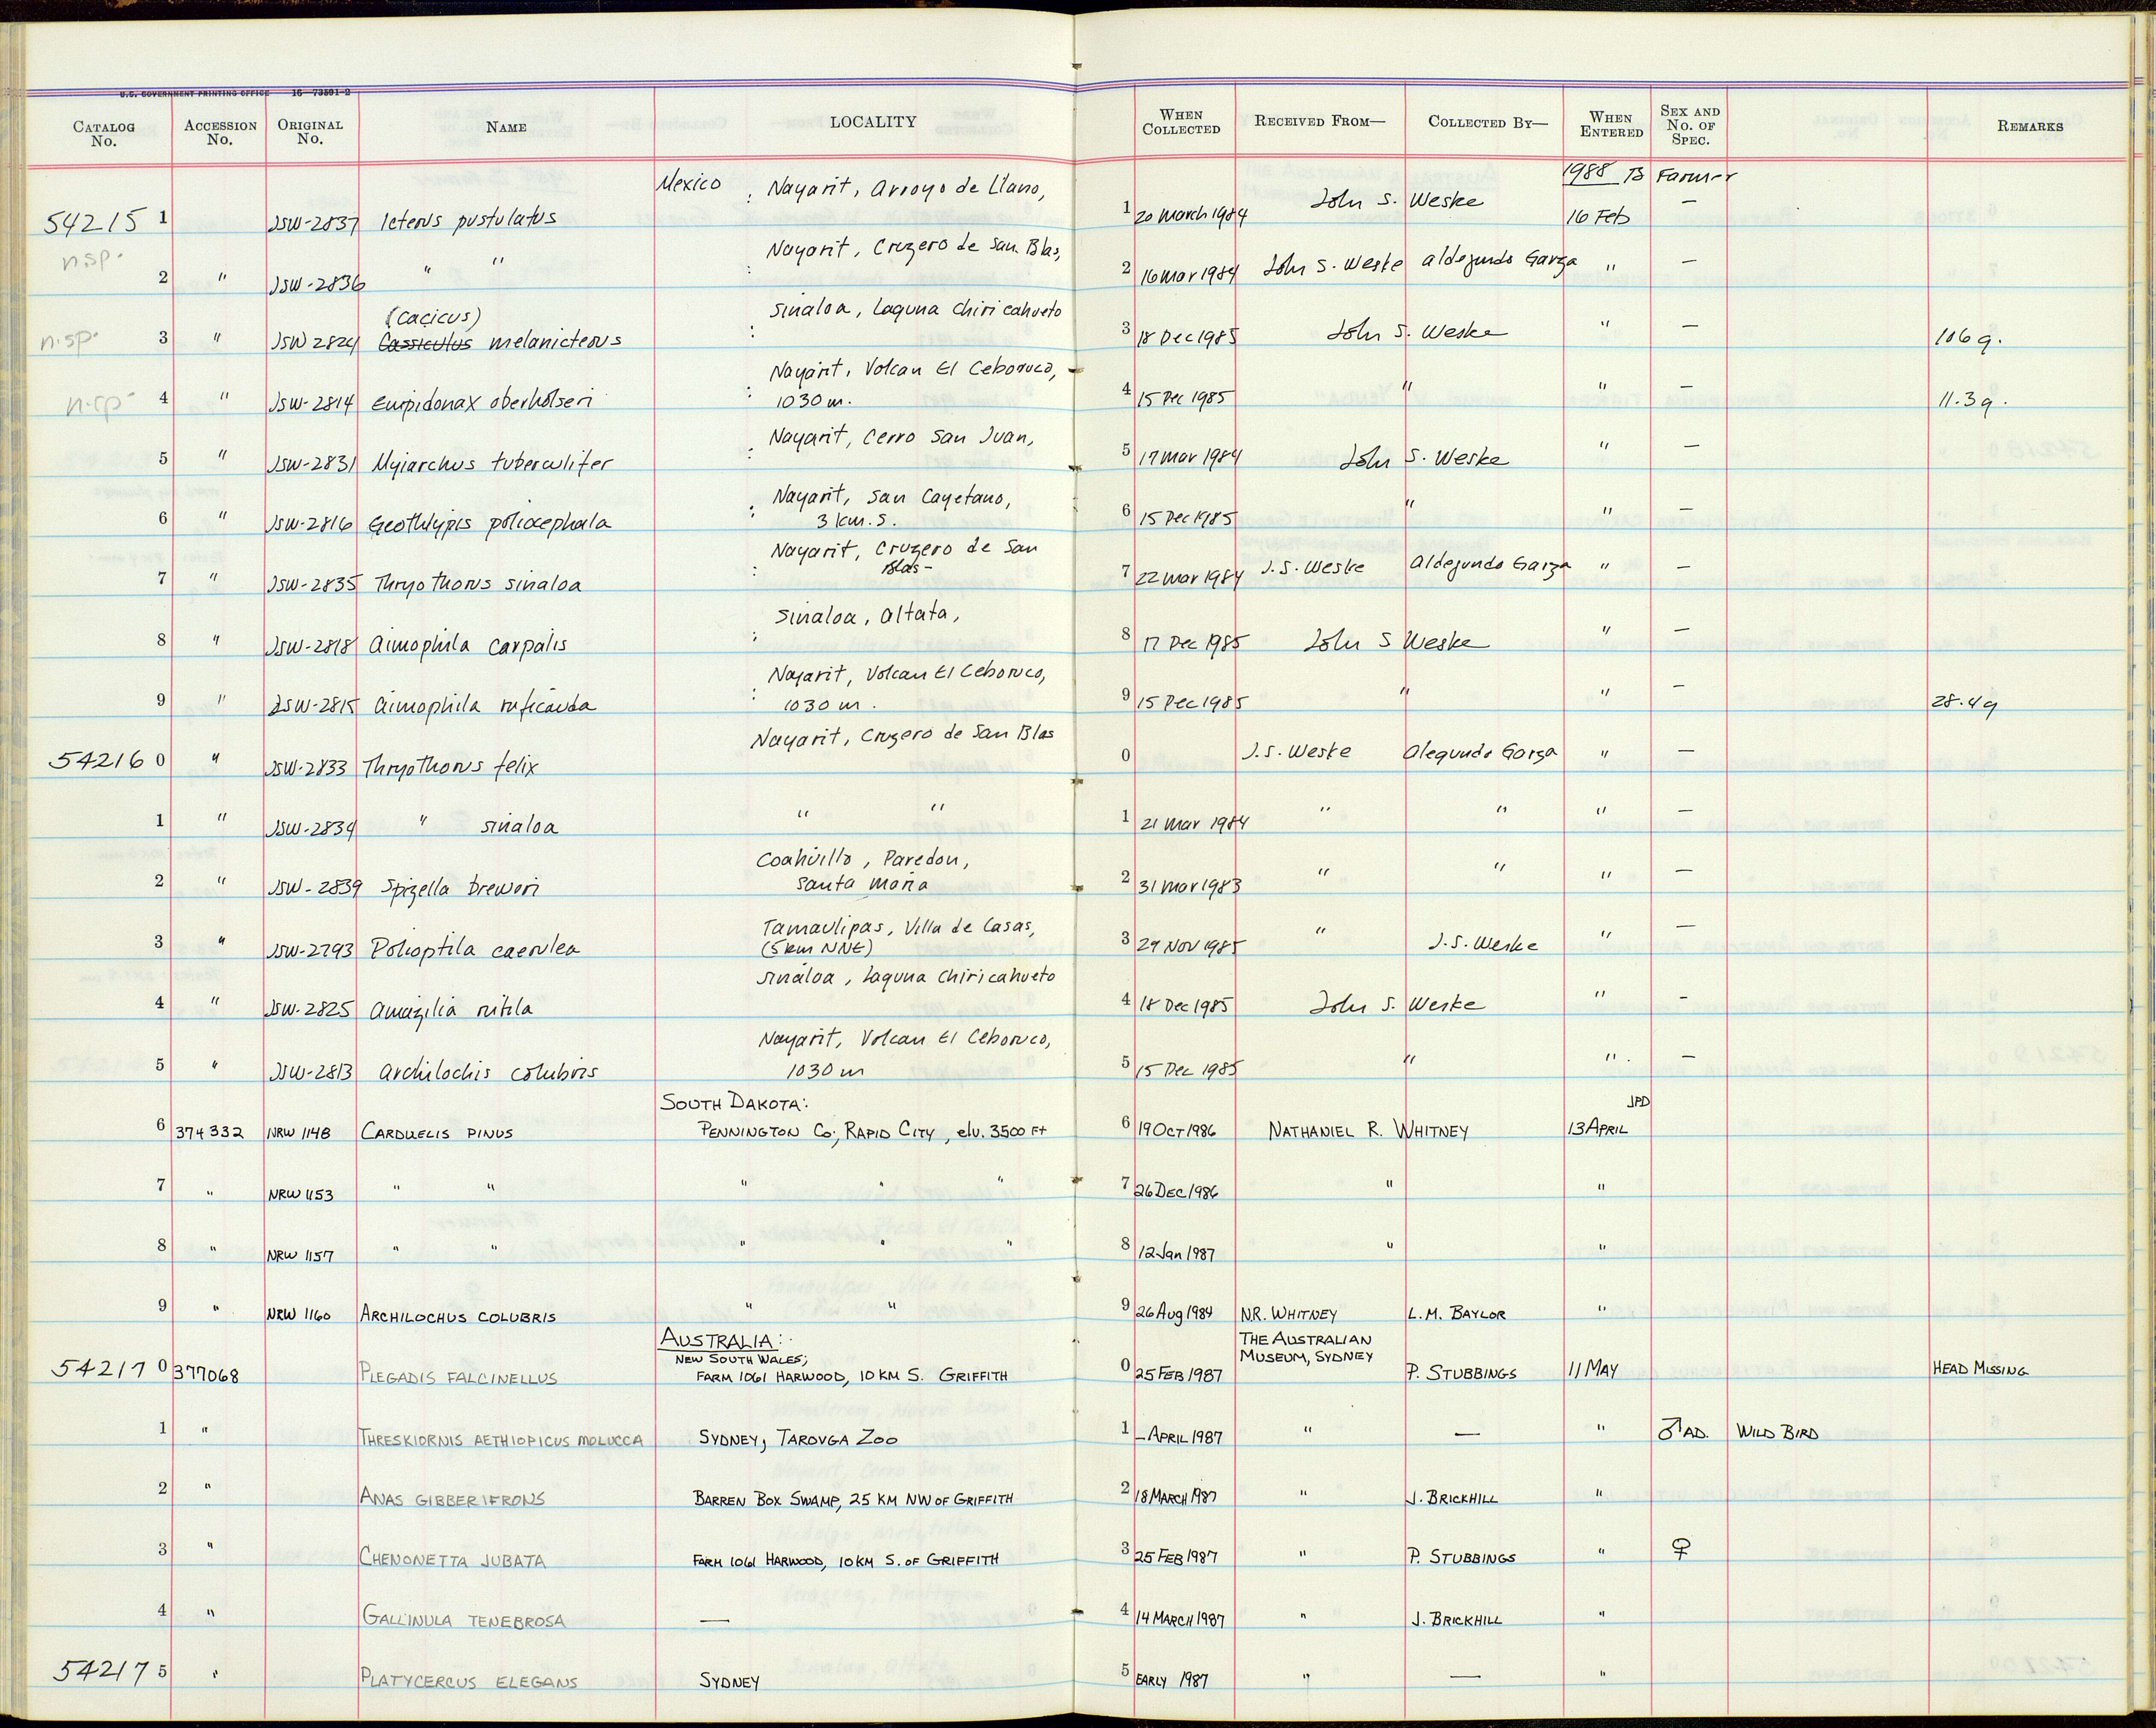 U.S. GOVERNMENT PRINTING OFFICE 16—73591-2
CATALOG No. ACCESSION No. ORIGINAL No. NAME LOCALITY WHEN COLLECTED RECEIVED FROM— COLLECTED BY— WHEN ENTERED SEX AND No. OF SPEC. REMARKS
1988 TS Farmer
Mexico : Nayarit, Arroyo de Llano,
54215 1 JSW-2837 Icterus pustulatus 1 20 March 1984 John S. Weske 16 Feb —
n.sp.
Nayarit, Cruzero de San Blas,
2 " JSW-2836 " " : 2 16 Mar 1984 John S. Weske Aldegundo Garza " —
(Cacicus) Sinaloa, Laguna Chiricahueto
n.sp. 3 " JSW 2824 Cassiculus melanicterus : 3 18 Dec 1985 John S. Weske " — 106 g.
Nayarit, Volcan El Ceboruco,
n.sp. 4 " JSW-2814 Empidonax oberholseri : 1030 m. 4 15 Dec 1985 " " — 11.3 g.
Nayarit, Cerro San Juan,
5 " JSW-2831 Myiarchus tuberculifer : 5 17 Mar 1984 John S. Weske " —
Nayarit, San Cayetano,
6 " JSW-2816 Geothlypis poliocephala : 3 km. S. 6 15 Dec 1985 " " —
Nayarit, Cruzero de San
Blas-
7 " JSW-2835 Thryothorus sinaloa : 7 22 Mar 1984 J.S. Weske Aldegundo Garza " —
Sinaloa, Altata,
8 " JSW-2818 Aimophila carpalis : 8 17 Dec 1985 John S Weske " —
Nayarit, Volcan El Ceboruco,
9 " JSW-2815 Aimophila ruficauda : 1030 m. 9 15 Dec 1985 " " — 28.4g
Nayarit, Cruzero de San Blas
54216 0 " JSW-2833 Thryothorus felix 0 J.S. Weske Alegundo Garza " —
1 " JSW-2834 " sinaloa " " 1 21 Mar 1984 " " " —
Coahuilla, Paredon,
2 " JSW-2839 Spizella breweri Santa Maria 2 31 Mar 1983 " " " —
Tamaulipas, Villa de Casas,
3 " JSW-2793 Polioptila caerulea (5km NNE) 3 29 Nov 1985 " J.S. Weske " —
Sinaloa, Laguna Chiricahueto
4 " JSW-2825 Amazilia rutila 4 18 Dec 1985 John S. Weske " -
Nayarit, Volcan El Ceboruco,
5 " JSW-2813 Archilochis colubris 1030 m 5 15 Dec 1985 " " —
SOUTH DAKOTA: JPD
6 374332 NRW 1148 CARDUELIS PINUS PENNINGTON Co; RAPID CITY, elv. 3500 Ft 6 19 OCT 1986 NATHANIEL R. WHITNEY 13 APRIL
7 " NRW 1153 " " " " " 7 26 DEC 1986 " "
8 " NRW 1157 " " " " " 8 12 Jan 1987 " "
9 " NRW 1160 ARCHILOCHUS COLUBRIS " " 9 26 Aug 1984 N.R. WHITNEY L.M. BAYLOR "
AUSTRALIA: THE AUSTRALIAN
NEW SOUTH WALES; MUSEUM, SYDNEY
54217 0 377068 PLEGADIS FALCINELLUS FARM 1061 HARWOOD, 10 KM S. GRIFFITH 0 25 FEB 1987 P. STUBBINGS 11 MAY HEAD MISSING
1 " THRESKIORNIS AETHIOPICUS MOLUCCA SYDNEY, TAROVGA ZOO 1 – APRIL 1987 " — " ♂ AD. WILD BIRD
2 " ANAS GIBBERIFRONS BARREN BOX SWAMP, 25 KM NW OF GRIFFITH 2 18 MARCH 1987 " J. BRICKHILL "
3 " CHENONETTA JUBATA FARM 1061 HARWOOD, 10 KM S. OF GRIFFITH 3 25 FEB 1987 " P. STUBBINGS " ♀
4 " GALLINULA TENEBROSA — 4 14 MARCH 1987 " J. BRICKHILL "
54217 5 " PLATYCERCUS ELEGANS SYDNEY 5 EARLY 1987 " — "